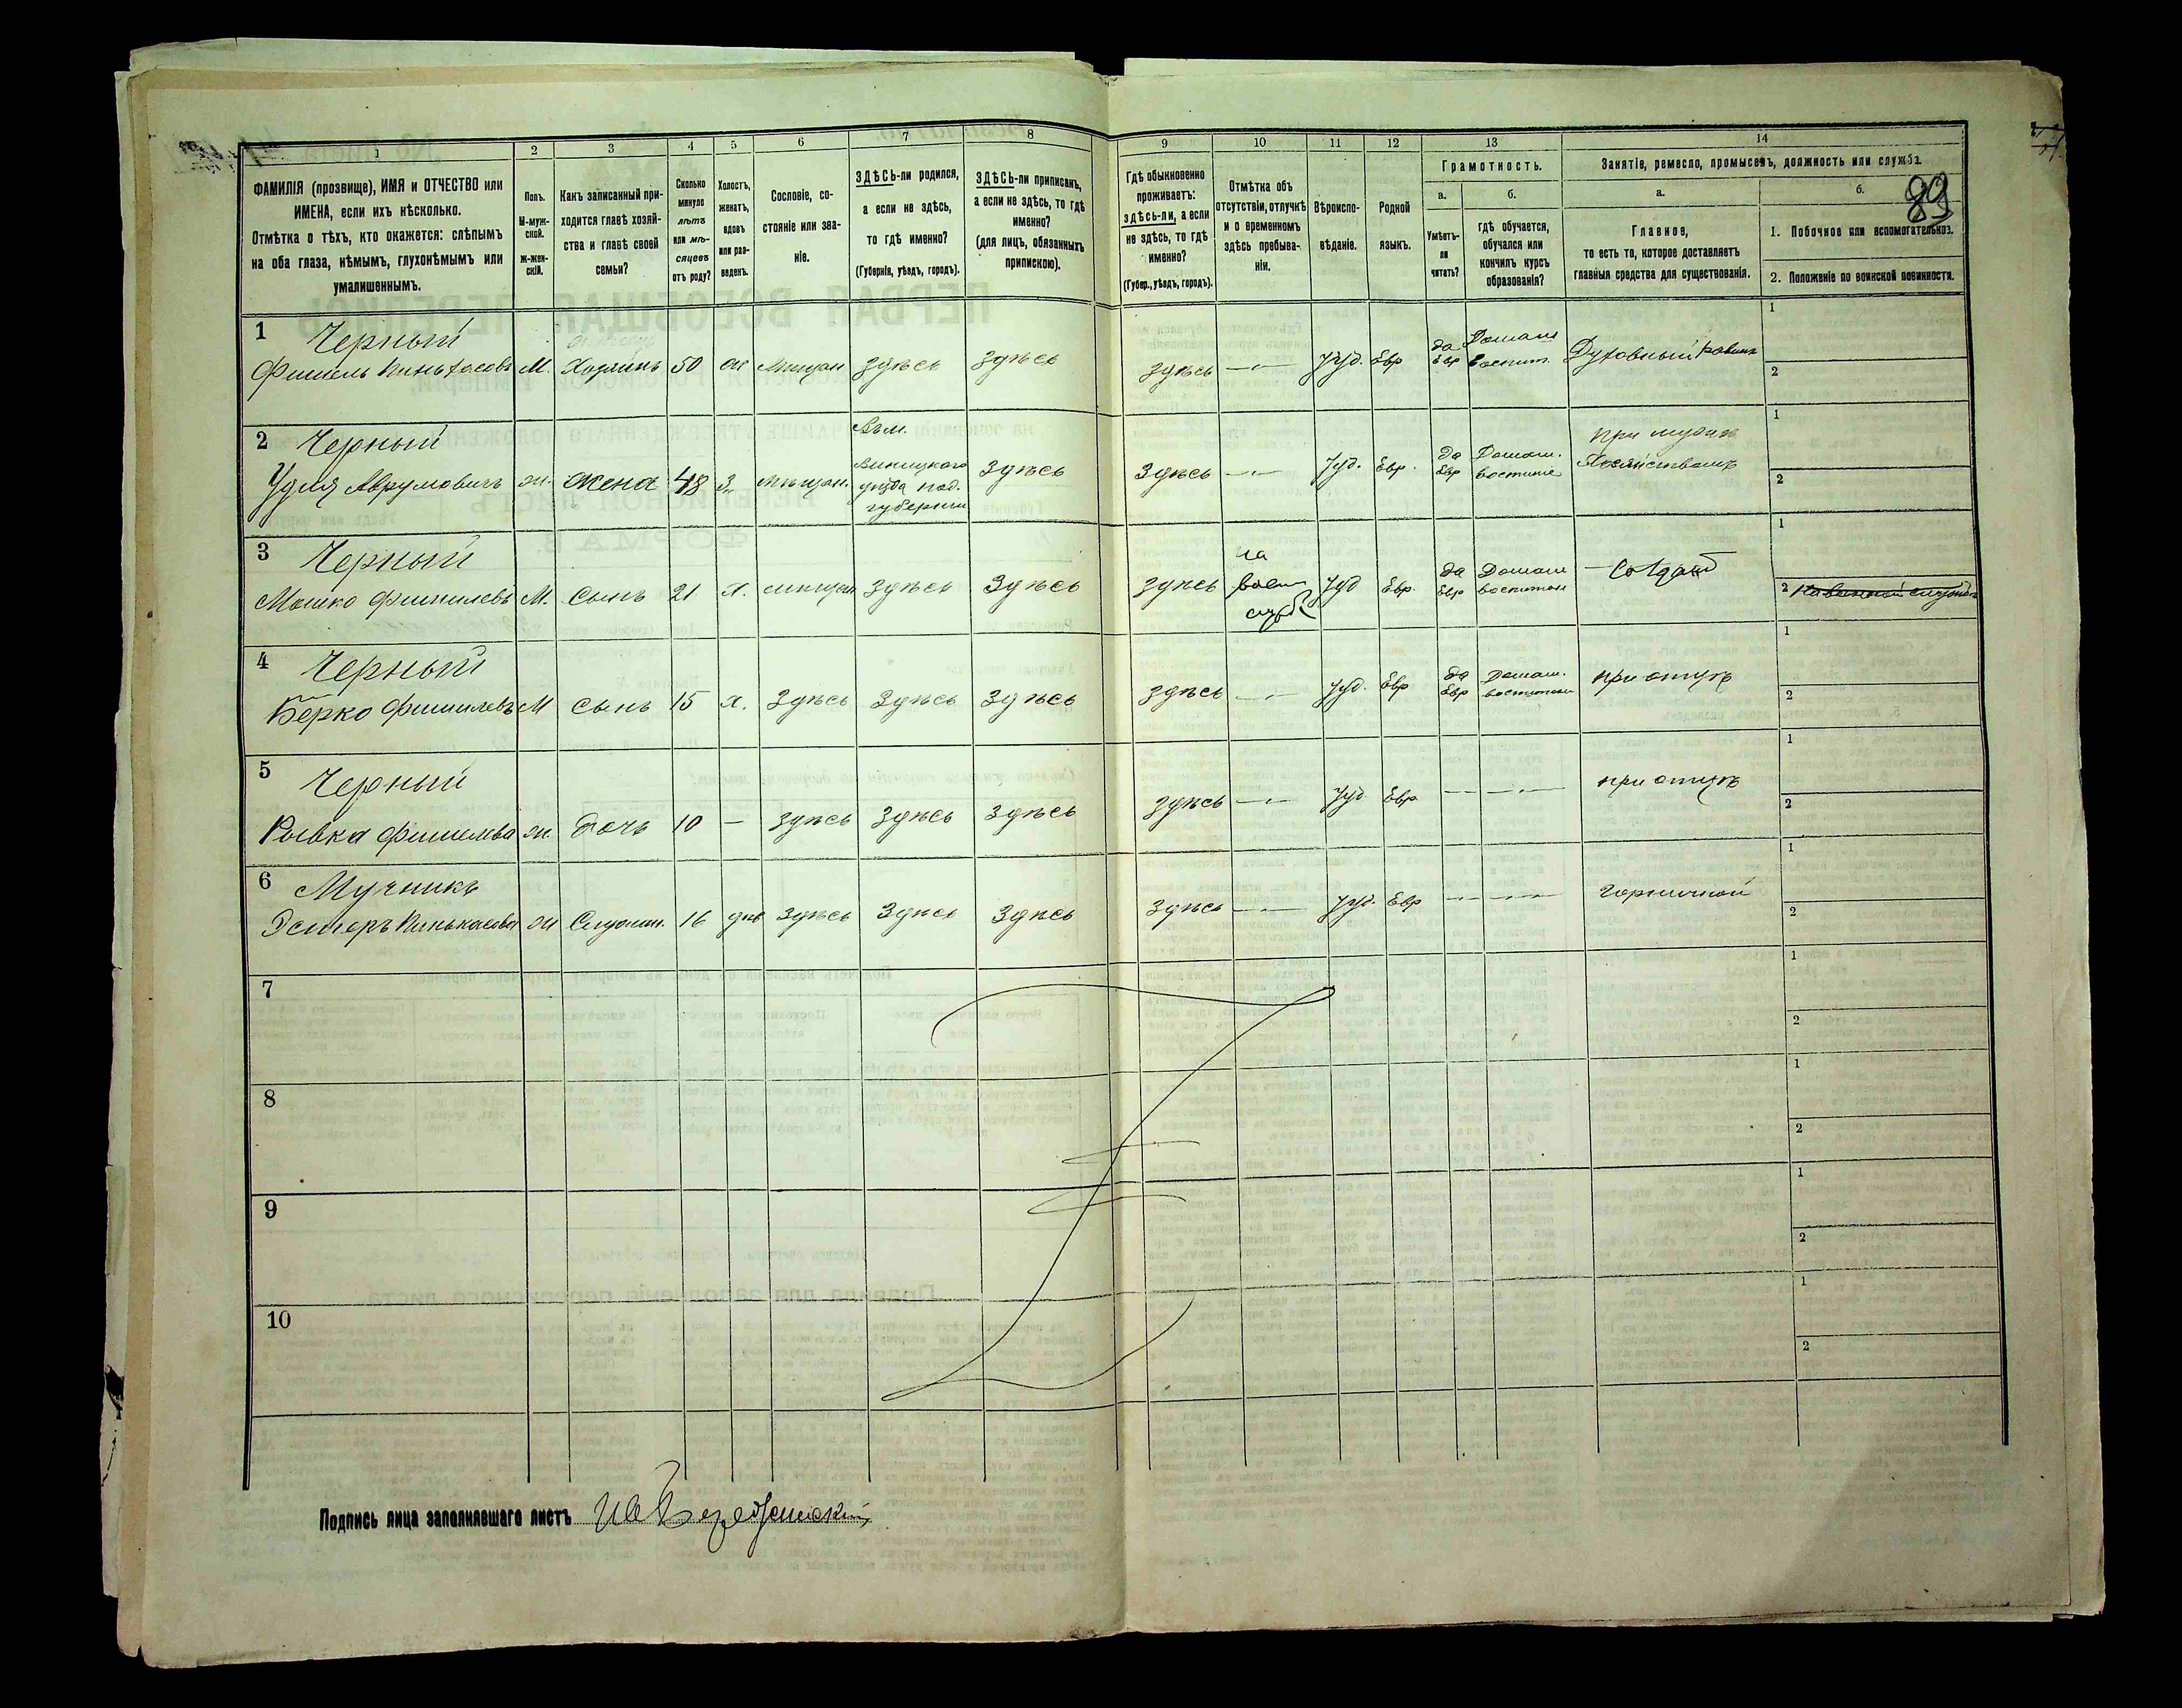 1 2 3 4 5 6 7 8 9 10 11 12 13 14
ФАМИЛІЯ (прозвище), ИМЯ и ОТЧЕСТВО или
ИМЕНА, если ихъ нѣсколько.
Отмѣтка о тѣхъ, кто окажется: слѣпымъ
на оба глаза, нѣмымъ, глухонѣмымъ или
умалишеннымъ.
Полъ.
М-муж-
ской.
Ж-жен-
скій.
Какъ записанный при-
ходится главѣ хозяй-
ства и главѣ своей
семьи?
Сколько
минуло
лѣтъ
или мѣ-
сяцевъ
отъ роду?
Холостъ,
женатъ,
вдовъ
или раз-
веденъ.
Сословіе, со-
стояніе или зва-
ніе.
ЗДѢСЬ-ли родился,
а если не здѣсь,
то гдѣ именно?
(Губернія, уѣздъ, городъ).
ЗДѢСЬ-ли приписанъ,
а если не здѣсь, то гдѣ
именно?
(для лицъ, обязанныхъ
припискою).
Гдѣ обыкновенно
проживаетъ:
здѣсь-ли, а если
не здѣсь, то гдѣ
именно?
(Губер., уѣздъ, городъ).
Отмѣтка объ
отсутствіи, отлучкѣ
и о временномъ
здѣсь пребыва-
ніи.
Вѣроиспо-
вѣданіе.
Родной
языкъ.
Грамотность.
а.
Умѣетъ-
ли
читать?
б.
гдѣ обучается,
обучался или
кончилъ курсъ
образованія?
Занятіе, ремесло, промыселъ, должность или служба.
а.
Главное,
то есть то, которое доставляетъ
главныя средства для существованія.
б.
89
1. Побочное или вспомогательное.
2. Положеніе по воинской повинности.
1 Черный
Фишель М. Хозяинъ 50 Мищан здѣсь здѣсь здѣсь —"— Іуд. Евр да Евр Домаш воспит. Духовный равин
1
2
2 Черный
Удля Аврумовичъ ж. жена 48 З. мищан. Виницкого уѣзда под. губернии здѣсь здѣсь —"— Іуд. Евр. да Евр Домаш. при мужѣ
1
2
3 Черный
Мошко Фишилевъ М. Сынъ 21 х. мищан здѣсь здѣсь здѣсь на воен служб Іуд Евр. да Евр Домаш Солдат
1
2
4 Черный
Берко Фишилевъ М сынъ 15 х. здѣсь здѣсь здѣсь здѣсь —"— Іуд. Евр да Евр Домаш. при отцѣ
1
2
5 Черный
Ривка Фишелева ж. дочь 10 — здѣсь здѣсь здѣсь здѣсь —"— Іуд. Евр — —"— при отцѣ
1
2
6 Мучникъ
Эстеръ ж 16 дѣв здѣсь здѣсь здѣсь здѣсь —"— Іуд. Евр — —"— горничной
1
2
7
1
2
8
1
2
9
1
2
10
1
2
Подпись лица заполнявшаго листъ